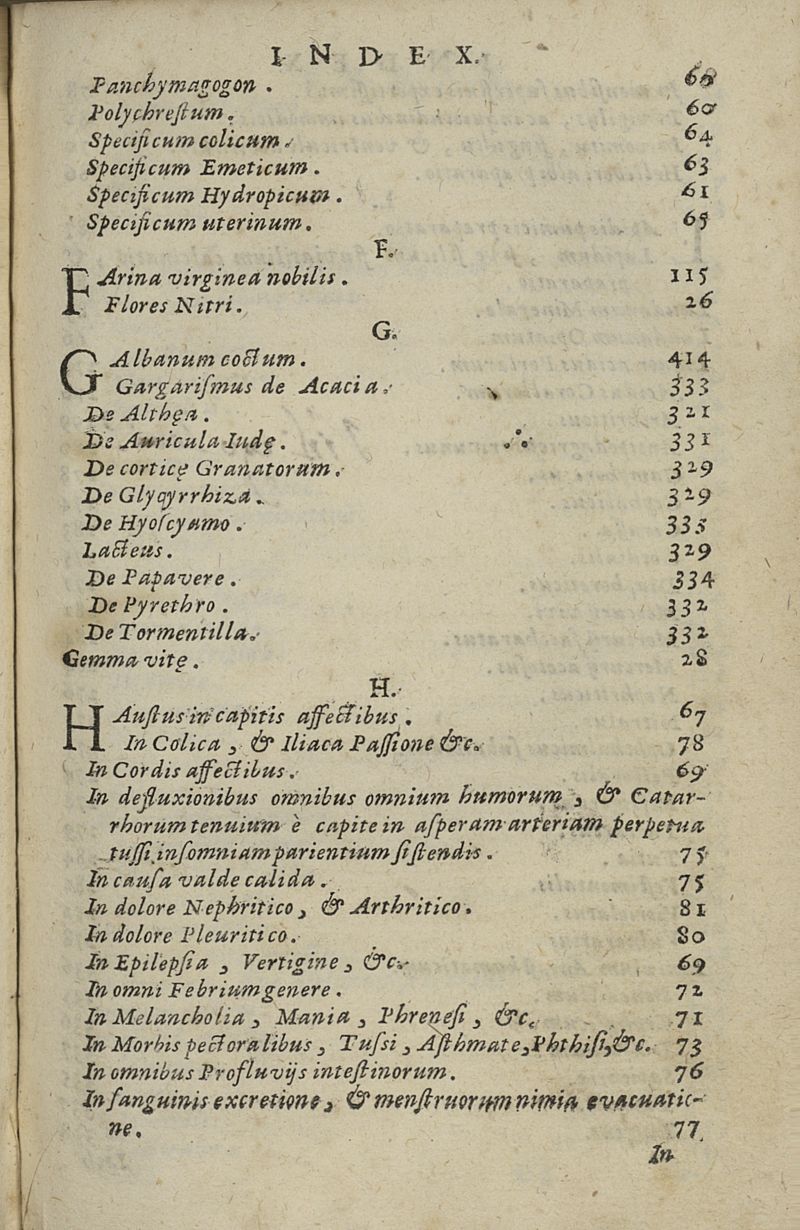 I N D E X.
Panchymagogon . 60
Polychreſtum. 60
Specificum colicum. 64
Specificum Emeticum . 63
Specificum Hydropicum . 61
Specificum uterinum. 65
F.
FArina virginea nobilis . 115
Flores Nitri. 26
G.
GAlbanum coctum . 414
Gargariſmus de Acacia. 333
De Althęa . 321
De Auricula Iudę . 331
De corticę Granatorum. 329
De Glyqyrrhiza. 329
De Hyoſcyamo . 335
Lacteus . 329
De Papavere . 334
De Pyrethro . 332
De Tormentilla. 332
Gemma vitę . 28
H.
HAuſtus in capitis affectibus . 67
In Colica , & Iliaca Paſſione &c. 78
In Cordis affectibus . 69
In defluxionibus omnibus omnium humorum , & Catar-
rhorum tenuium è capite in aſperam arteriam perpetua
tuſſi inſomniam parientium ſiſtendis . 75
In cauſa valde calida . 75
In dolore Nephritico , & Arthritico. 81
In dolore Pleuritico. 80
In Epilepſia , Vertigine , &c. 69
In omni Febrium genere . 72
In Melancholia , Mania , Phreneſi , &c. 71
In Morbis pectoralibus , Tuſsi , Aſthmate, Phthiſi, &c. 73
In omnibus Profluvijs inteſtinorum. 76
In ſanguinis excretione , & menſtruorum nimia evacuatio-
ne. 77
In